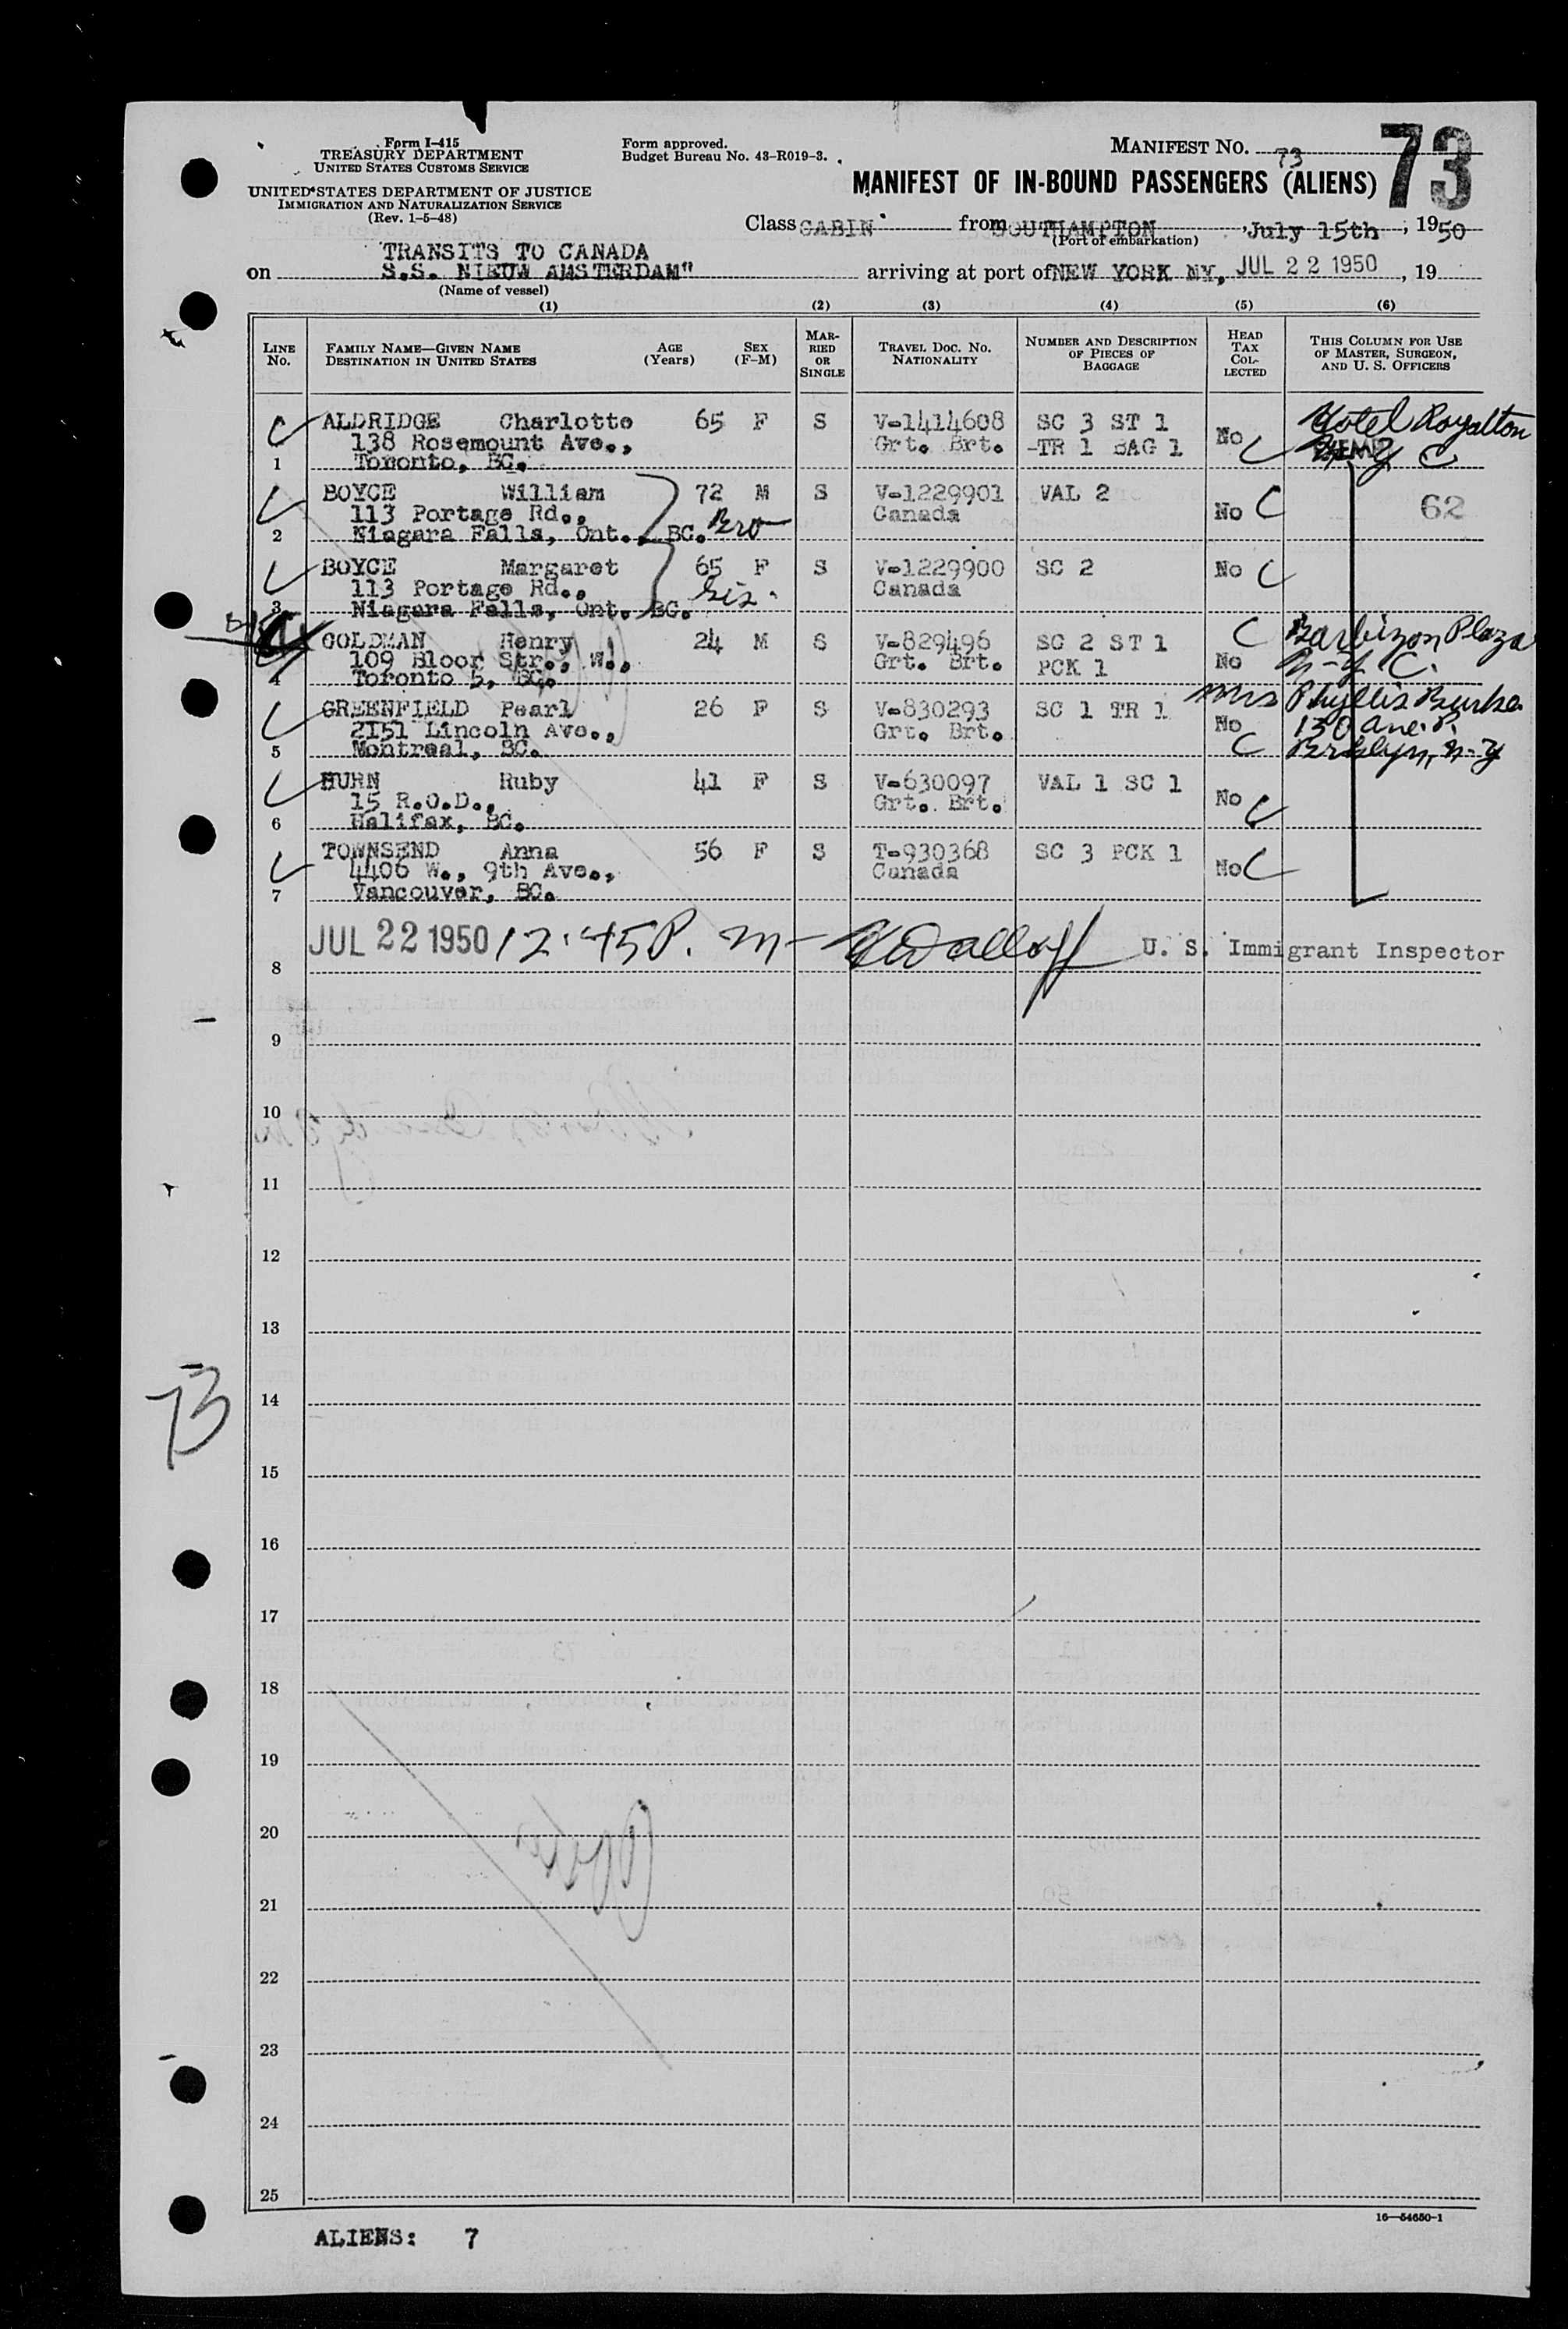 Form I-415
TREASURY DEPARTMENT
UNITED STATES CUSTOMS SERVICE
UNITED STATES DEPARTMENT OF JUSTICE
IMMIGRATION AND NATURALIZATION SERVICE
(Rev. 1-5-48)
Form approved.
Budget Bureau No. 43-R019-3.
MANIFEST NO. 73
73
MANIFEST OF IN-BOUND PASSENGERS (ALIENS)
Class CABIN from SOUTHAMPTON, July 15th, 1950
(Port of embarkation)
TRANSITS TO CANADA
on S.S. NIEUW AMSTERDAM" arriving at port of NEW YORK NY, JUL 22 1950, 19
(Name of vessel)
(1) (2) (3) (4) (5) (6)
LINE No. FAMILY NAME—GIVEN NAME DESTINATION IN UNITED STATES AGE (Years) SEX (F-M) MARRIED OR SINGLE TRAVEL DOC. NO. NATIONALITY NUMBER AND DESCRIPTION OF PIECES OF BAGGAGE HEAD TAX COLLECTED THIS COLUMN FOR USE OF MASTER, SURGEON, AND U. S. OFFICERS
ALDRIDGE Charlotte 65 F S V-1414608 SC 3 ST 1 Hotel Royalton
138 Rosemount Ave., Grt. Brt. -TR 1 BAG 1 No C N Y C
1 Toronto, BC.
BOYCE William 72 M S V-1229901 VAL 2
113 Portage Rd., Canada No C 62
2 Niagara Falls, Ont. BC. Bro
BOYCE Margaret 65 F S V-1229900 SC 2 No C
113 Portage Rd., Canada
3 Niagara Falls, Ont. BC. Sis.
GOLDMAN Henry 24 M S V-829496 SC 2 ST 1 C Barbizon Plaza
109 Bloor Str., W., Grt. Brt. PCK 1 No N-Y C.
4 Toronto 5, BC.
GREENFIELD Pearl 26 F S V-830293 SC 1 TR 1 Mrs Phyllis Burke
2151 Lincoln Ave., Grt. Brt. No 130 Ave. P.
5 Montreal, BC. C Brklyn, N-Y
HURN Ruby 41 F S V-630097 VAL 1 SC 1
15 R.O.D., Grt. Brt. No C
6 Halifax, BC.
TOWNSEND Anna 56 F S T-930368 SC 3 PCK 1
4406 W., 9th Ave., Canada No C
7 Vancouver, BC.
JUL 22 1950 12:45 P. m- U. S. Immigrant Inspector
8
9
10
11
12
13
73
14
15
16
17
18
19
20
21
22
23
24
25
16—54650-1
ALIENS: 7